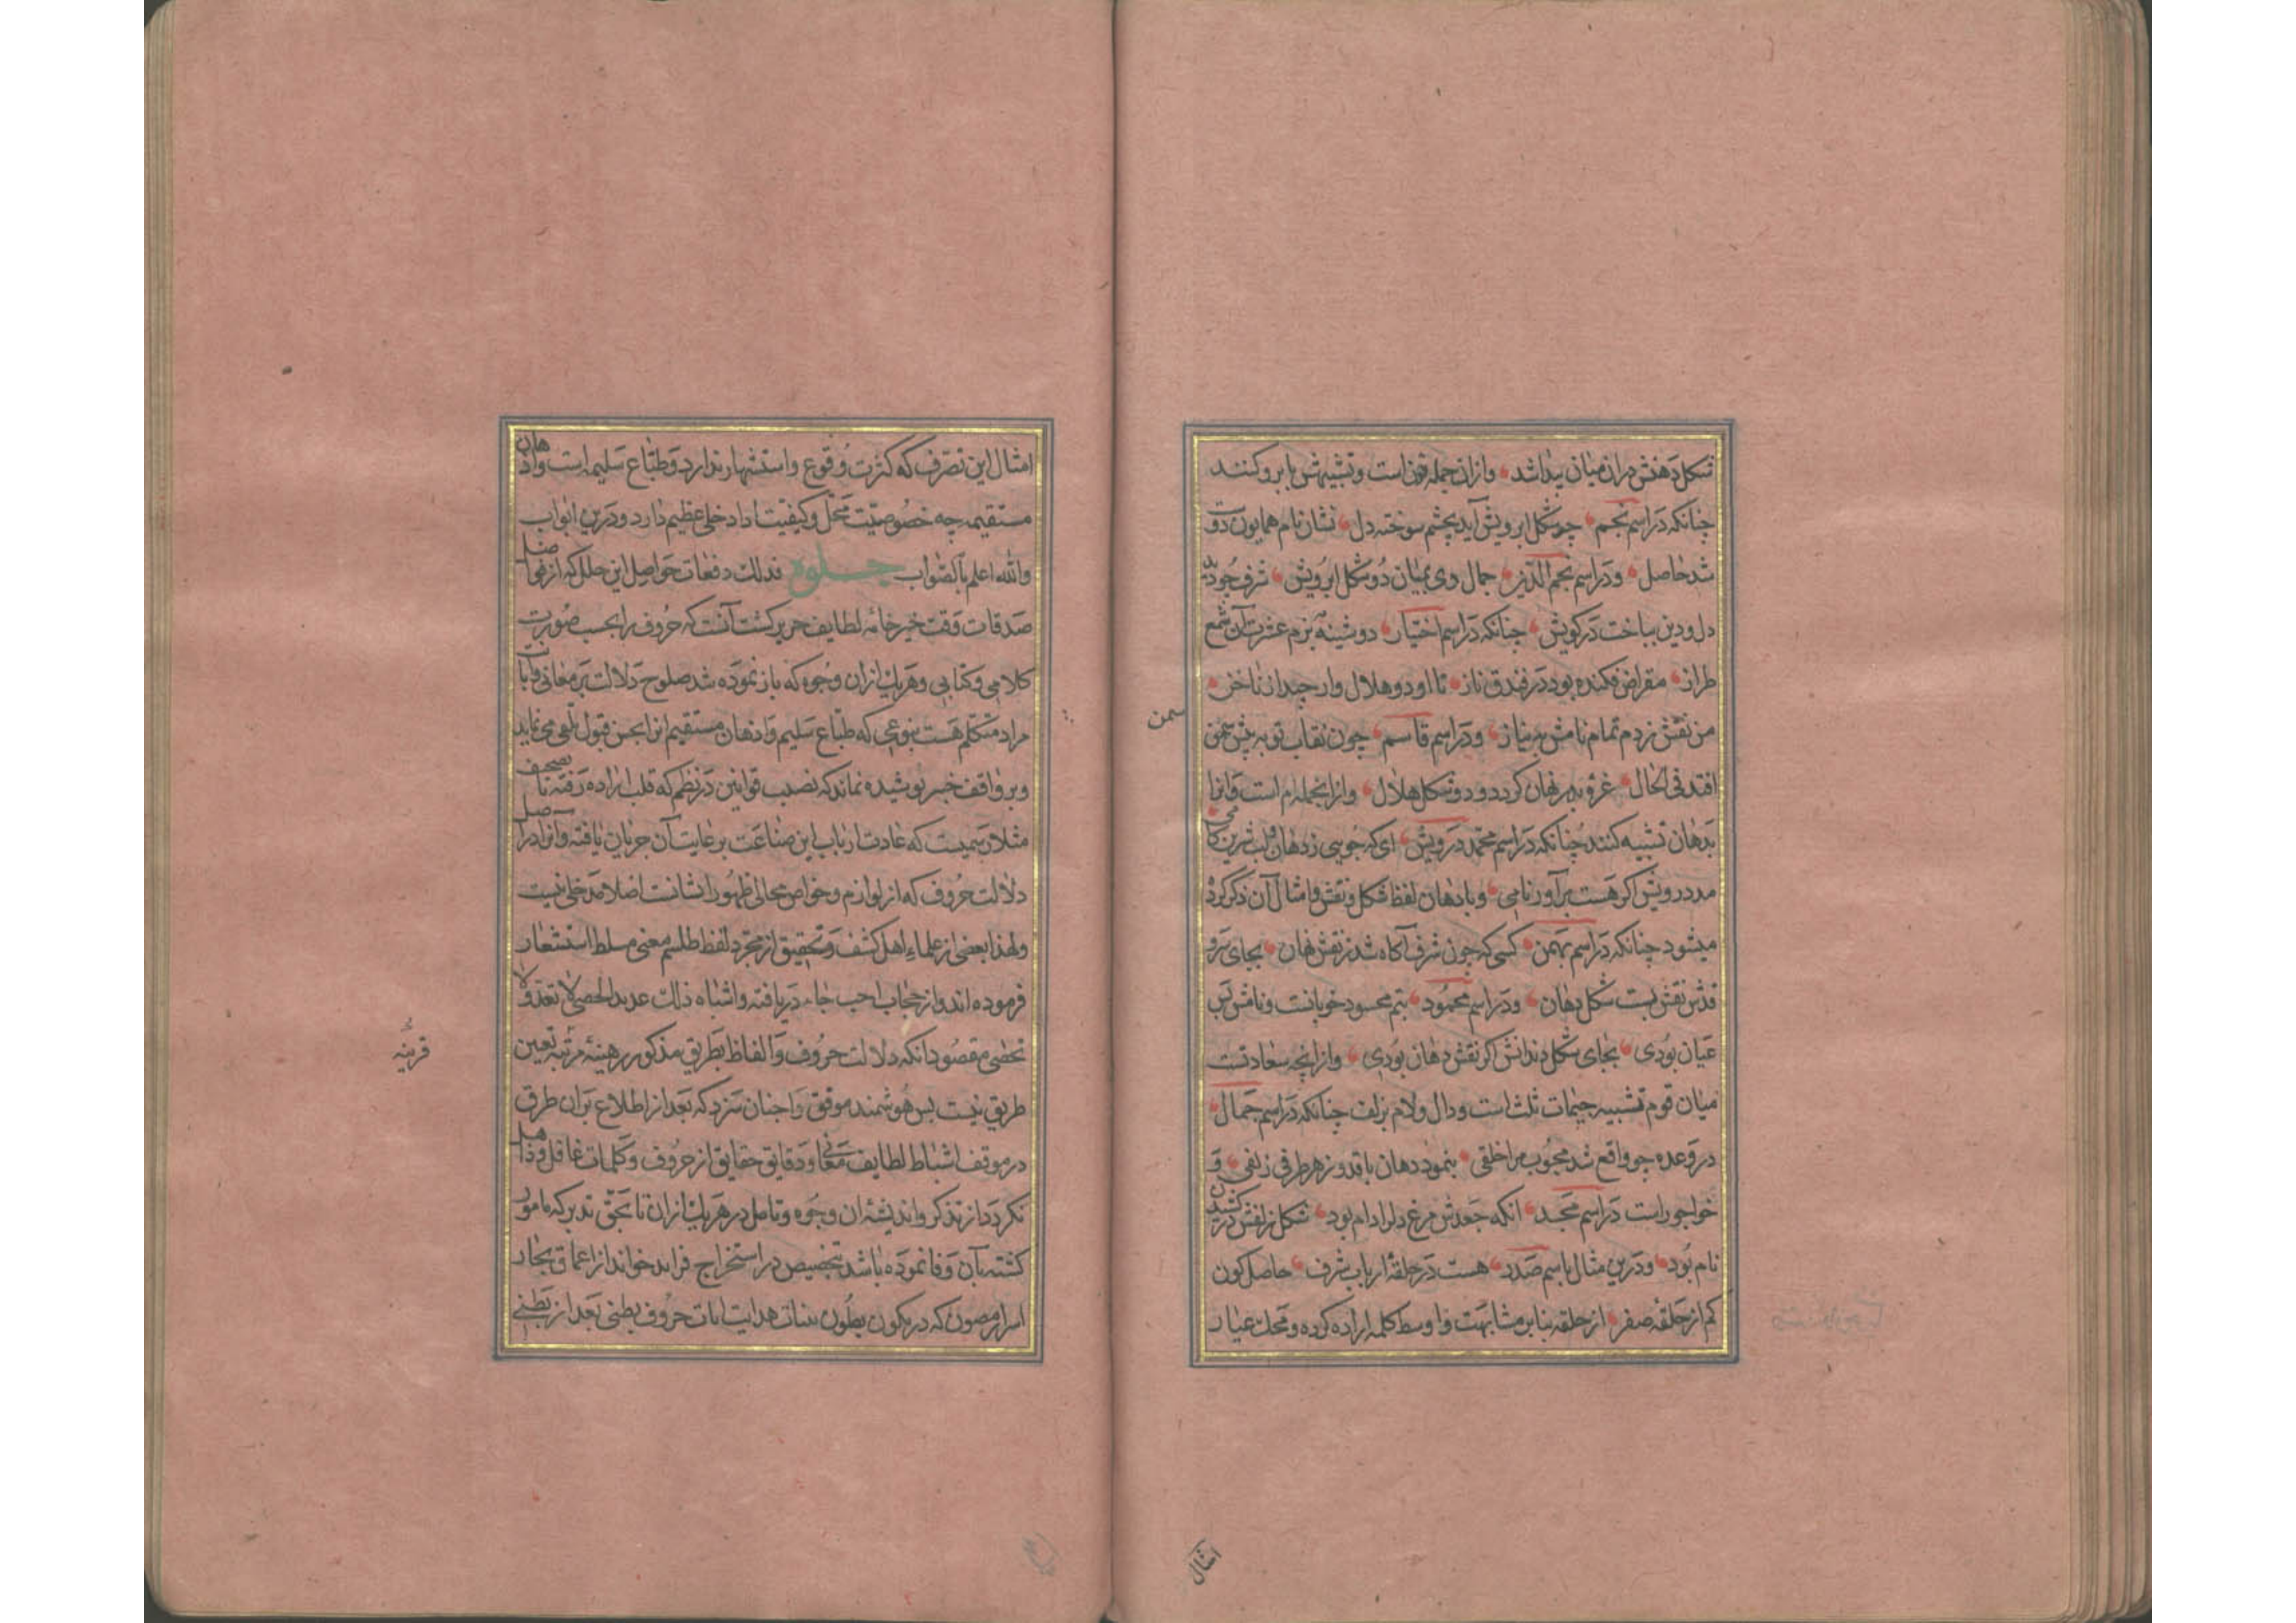 شکل دهنش در ان میان پیدا شد وازان جمله نون است وتشبیهش بابرو کنند
چنانکه در اسم نجم چو شکل ابرویش آید بچشم سوخته دل نشان نام همایون دوت
شد حاصل ودر اسم نجم الدین جمال وی بمیان دو شکل ابرویش شرف چو دید
دل ودین بباخت در کویش چنانکه در اسم اختیار دوشینه ببزم عشرت آن شمع
طراز مقراض فکنده بود در فندق ناز تا او دو هلال وار چید از ناخن
من نقش زدم تمام نامش بنیاز ودر اسم قاسم چون نقاب تو به پیش سمن
افتد فی الحال غره بدر نهان کردد و دو شکل هلال وازانجمله م است وانرا
بدهان تشبیه کنند چنانکه در اسم محمد درویش ای که جویی ز دهان لب شیرین کامی
مدد درویش اکر هست برآور نامی وبا دهان لفظ شکل ونقش وامثال آن ذکر کرده
میشود چنانکه در اسم بهمن کسی که چون شرف آکاه شد ز نقش نهان بجای سرو
قدش نقش بست شکل دهان ودر اسم محمود بتم محسود خوبانست ونامش بس
عیان بودی بجای شکل دندانش اکر نقش دهان بودی وازانچه متعادتست
میان قوم تشبیه جیمات ثلث است ودال ولام بزلف چنانکه در اسم جمال
در وعده چو واقع شد محبوب مرا خلقی بنمود دهان با قد وز هر طرفی زلفی و
خواجو راست در اسم مجد انکه جعدش مرغ دلرا دام بود شکل زلفش در کشیدن
نام بود ودرین مثال باسم صدر هست در حلقهٔ ارباب شرف حاصل کون
کم از حلقه صفر از حلقه بنابر مشابهت واو وسط کلمه اراده کرده ومحک عیار
سمن
امثال
امثال این تصرف که کثرت وقوع واستشهار ندارد وطباع سلیمه است واذهان
مستقیمه چه خصوصیت محل وکیفیت ادا دخلی عظیم دارد ودرین ابواب
والله اعلم بالصواب جلوه فذلک دفعات حواصل این حلل که از فواضل
صدقات وقت خیر خامه لطایف حریر کشت آنست که حروف را بحسب صورت
کلامی وکتابی وهر یک ازان وجوه که باز نموده شد صلوح دلالت بر معانی وآیات
مراد متکلم هست بنوعی که طباع سلیم واذهان مستقیم انرا بحسن قبول تلقی می نماید
وبر واقف خبیر پوشیده نماند که نصب قوانین در نظم که قلب اراده رفته تا تصحیف
مثلا رسمیست که عادت ارباب این صناعت برعایت آن جریان یافته وانرا در اصل
دلالت حروف که از لوازم وخواص مجالی ظهور انشانت اصلا مدخلی نیست
ولهذا بعضی از علماء اهل کشف وتحقیق از مجرد لفظ طلسم معنی مسلط استشعار
فرموده اند واز حجاب احب جاء دریافته واشباه ذلک عدید الحصی لا تعد ولا
تحصی مقصود انکه دلالت حروف والفاظ بطریق مذکور رهینه مرتبه تعین
طریق نیست پس هوشمند موفق را چنان سزد که بعد از اطلاع بران طرق
در موقف استنباط لطایف معانی ودقایق حقایق از حروف وکلمات غافل وذاهل
نکردد از تذکر واندیشه ان وجوه وتامل در هر یک ازان تا بحق تدبر که مامور
کشته بآن وفا نموده باشد بتخصیص در استخراج فراید خواند از اعماق بحار
اسرار مصون که در مکون بطون بینات هدایت ایات حروف بطنی بعد از بطنی
قرینه